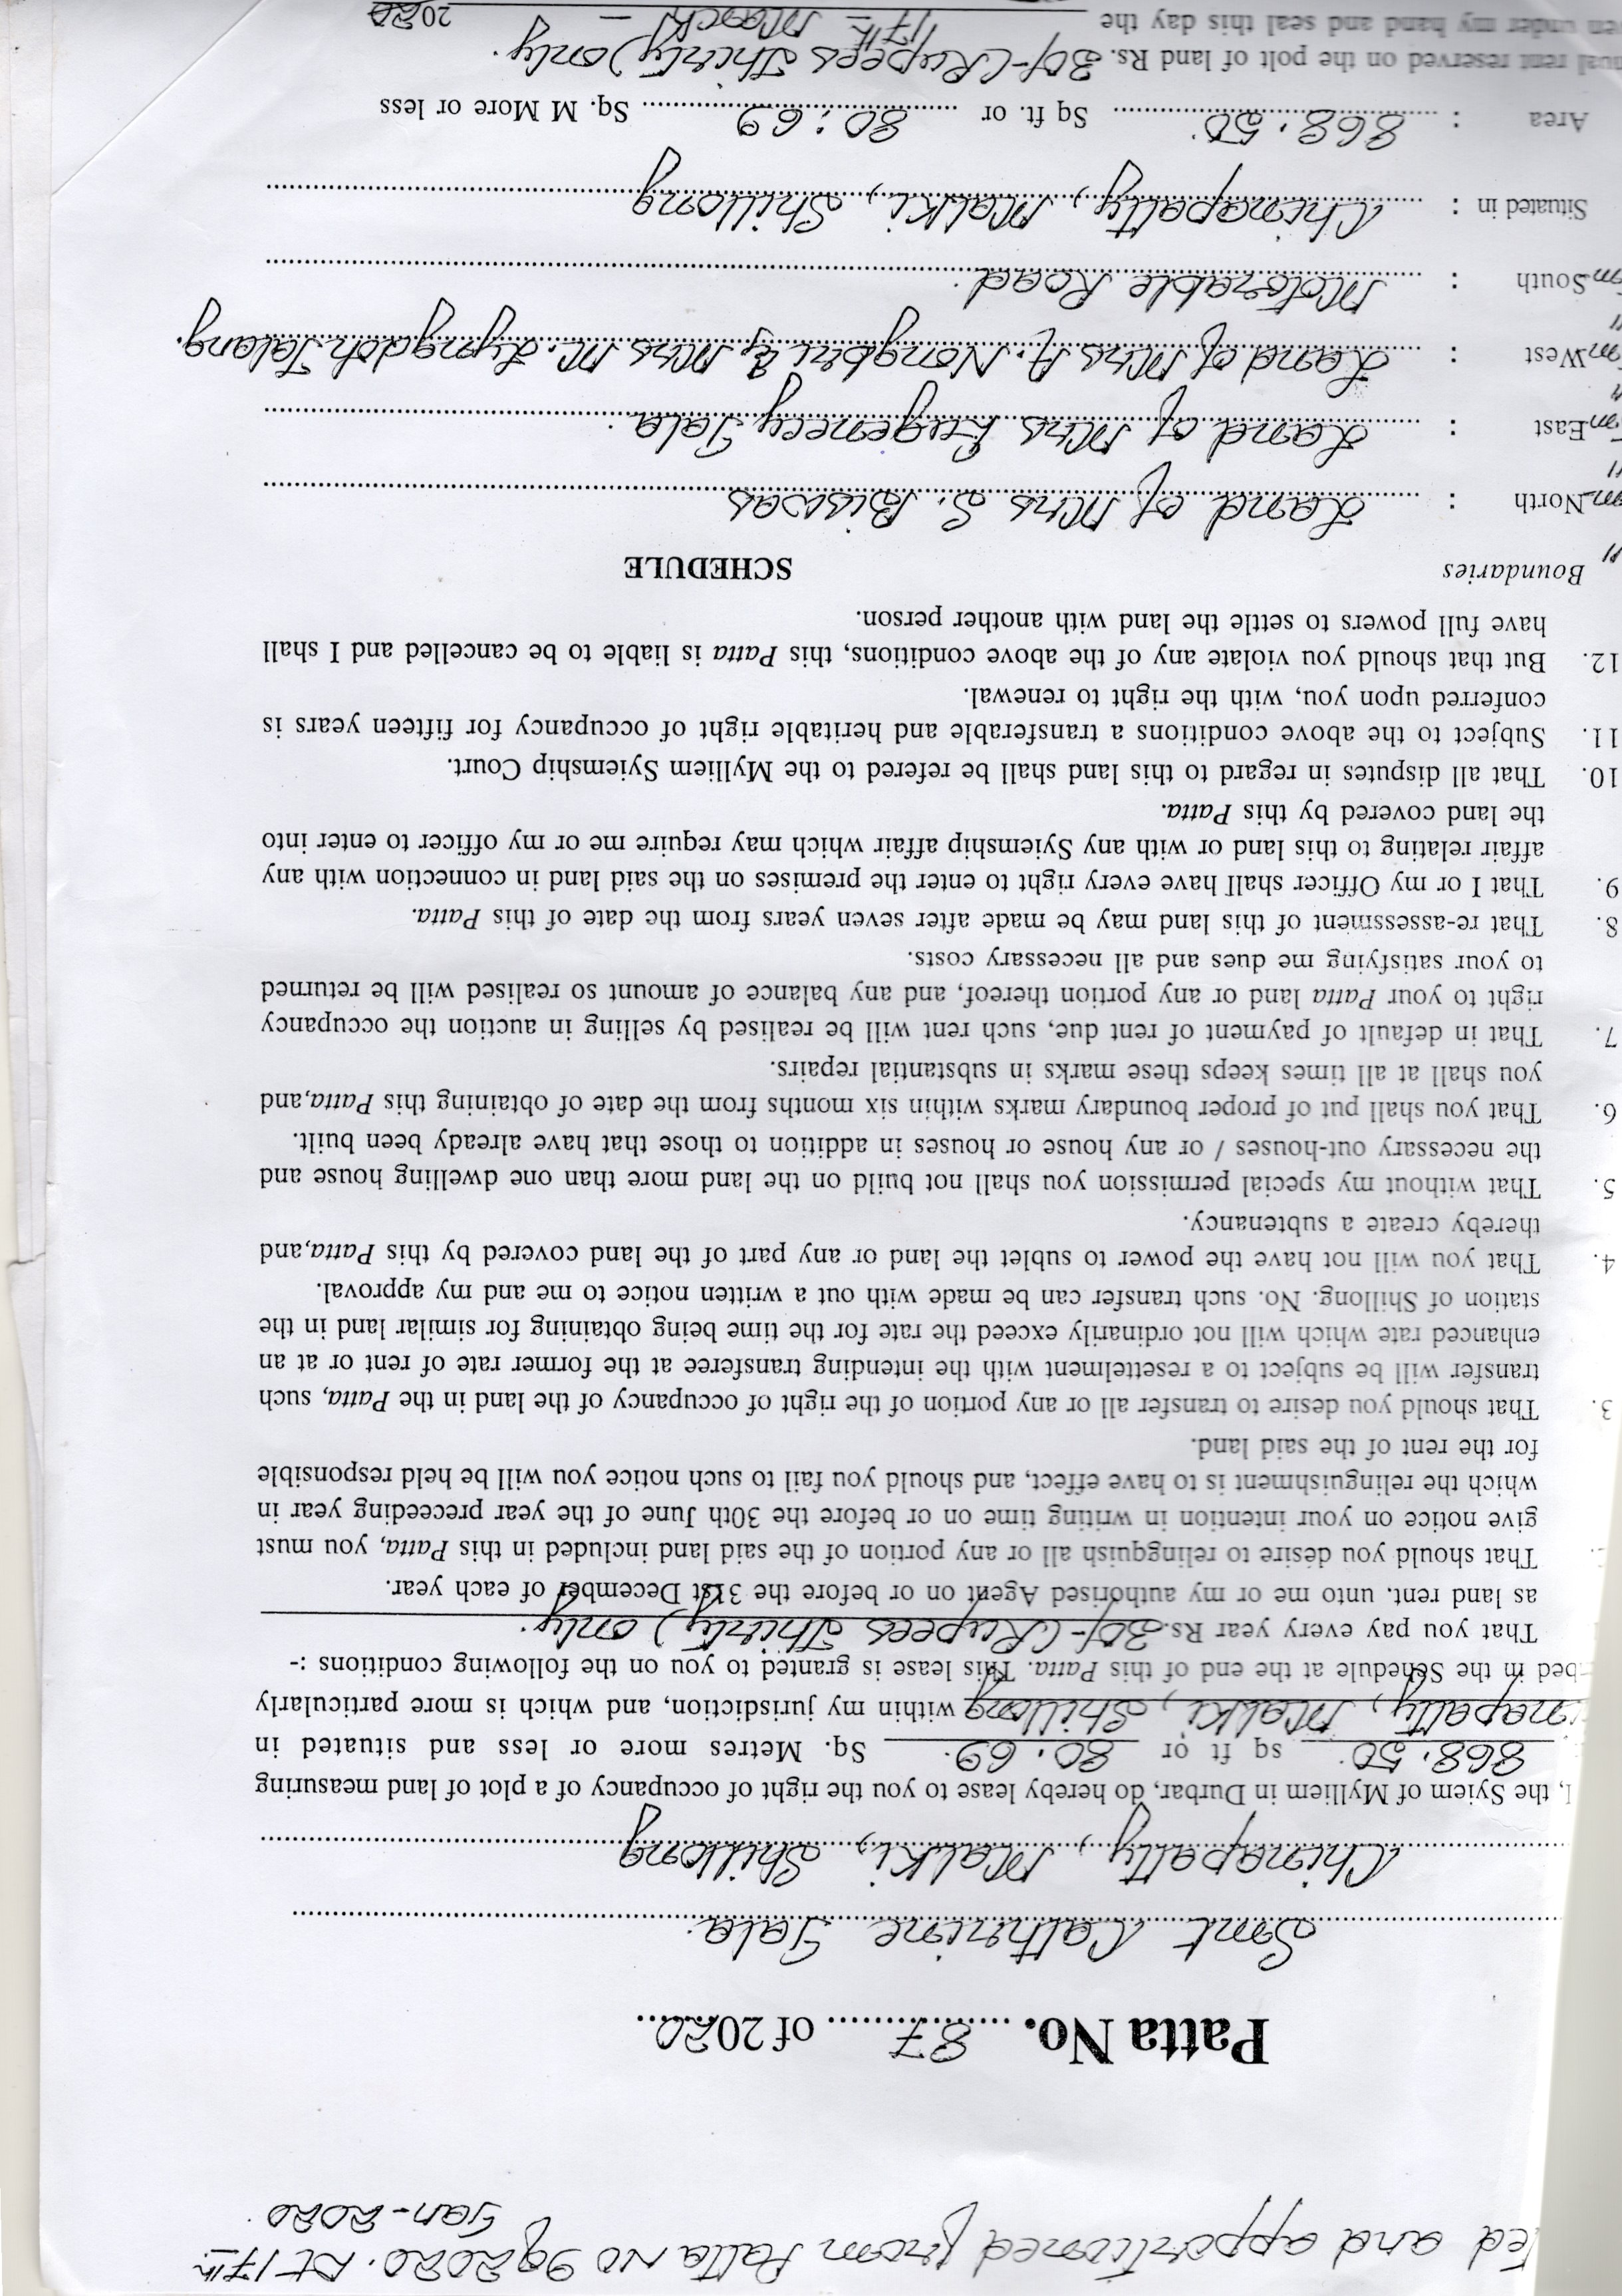 ted and apportioned from Patta No 9 of 2020. Dt 17th
Jan-2020
Patta No. 87 of 2020
Smt Catherine Tala.
Chinapatty, Malki, Shillong
I, the Syiem of Mylliem in Durbar, do hereby lease to you the right of occupancy of a plot of land measuring
868.50 sq ft or 80.69 Sq. Metres more or less and situated in
inapatty, Malki, Shillong within my jurisdiction, and which is more particularly
bed in the Schedule at the end of this Patta. This lease is granted to you on the following conditions :-
That you pay every year Rs. 30/- (Rupees Thirty) only.
as land rent. unto me or my authorised Agent on or before the 31st December of each year.
That should you desire to relinquish all or any portion of the said land included in this Patta, you must
give notice on your intention in writing time on or before the 30th June of the year preceeding year in
which the relinguishment is to have effect, and should you fail to such notice you will be held responsible
for the rent of the said land.
3. That should you desire to transfer all or any portion of the right of occupancy of the land in the Patta, such
transfer will be subject to a resettelment with the intending transferee at the former rate of rent or at an
enhanced rate which will not ordinarily exceed the rate for the time being obtaining for similar land in the
station of Shillong. No. such transfer can be made with out a written notice to me and my approval.
4. That you will not have the power to sublet the land or any part of the land covered by this Patta,and
thereby create a subtenancy.
5. That without my special permission you shall not build on the land more than one dwelling house and
the necessary out-houses / or any house or houses in addition to those that have already been built.
6. That you shall put of proper boundary marks within six months from the date of obtaining this Patta,and
you shall at all times keeps these marks in substantial repairs.
7. That in default of payment of rent due, such rent will be realised by selling in auction the occupancy
right to your Patta land or any portion thereof, and any balance of amount so realised will be returned
to your satisfying me dues and all necessary costs.
8. That re-assessment of this land may be made after seven years from the date of this Patta.
9. That I or my Officer shall have every right to enter the premises on the said land in connection with any
affair relating to this land or with any Syiemship affair which may require me or my officer to enter into
the land covered by this Patta.
10. That all disputes in regard to this land shall be refered to the Mylliem Syiemship Court.
11. Subject to the above conditions a transferable and heritable right of occupancy for fifteen years is
conferred upon you, with the right to renewal.
12. But that should you violate any of the above conditions, this Patta is liable to be cancelled and I shall
have full powers to settle the land with another person.
Boundaries SCHEDULE
North : Land of Mrs S. Biswas
East : Land of Mrs Eugenecy Tala.
West : Land of Mrs A. Nongbri & Mrs M. Lyngdoh Talang.
South : Motorable Road.
Situated in : Chinapatty, Malki, Shillong
Area : 868.50 Sq ft. or 80.69 Sq. M More or less
nual rent reserved on the polt of land Rs. 30/- (Rupees Thirty) only.
en under my hand and seal this day the 17th March - 2020